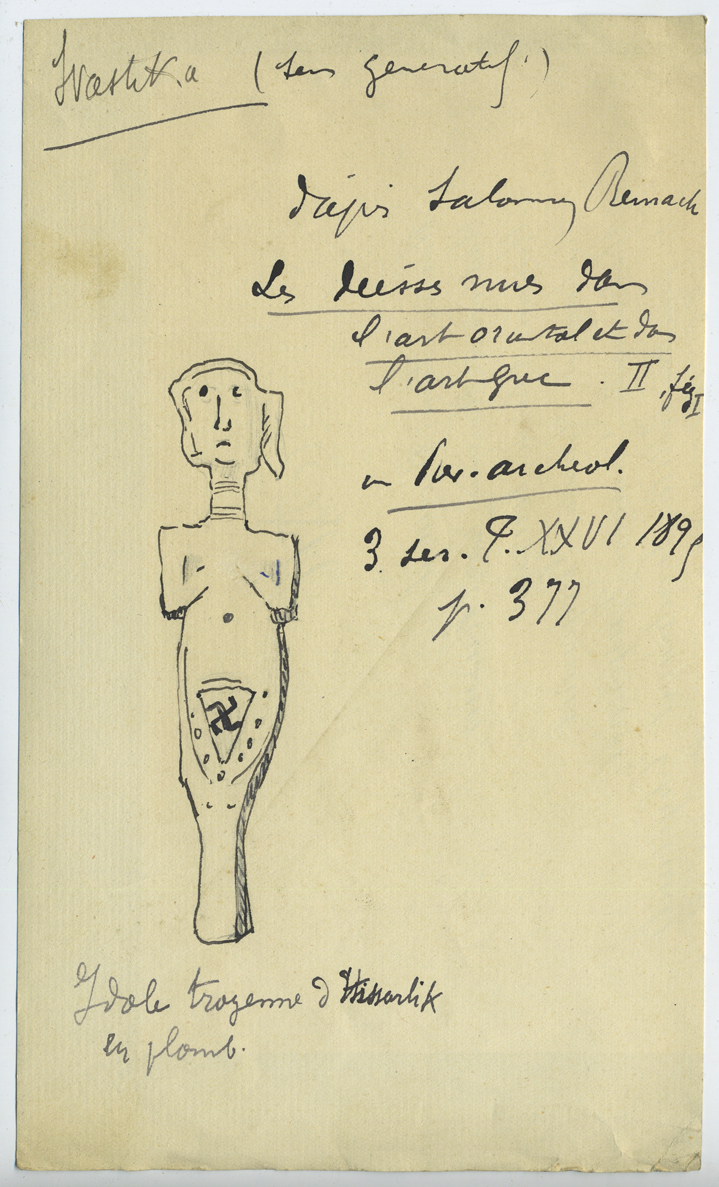 Svastika (sens génératif.)
d'après Salomon Reinach
Les déesses nues dans
l'art oriental et dans
l'art grec. II, fig I
in Rev. archeol.
3. ser. T. XXVI 1895
p. 377
Idole troyenne d'Hissarlik
en plomb.